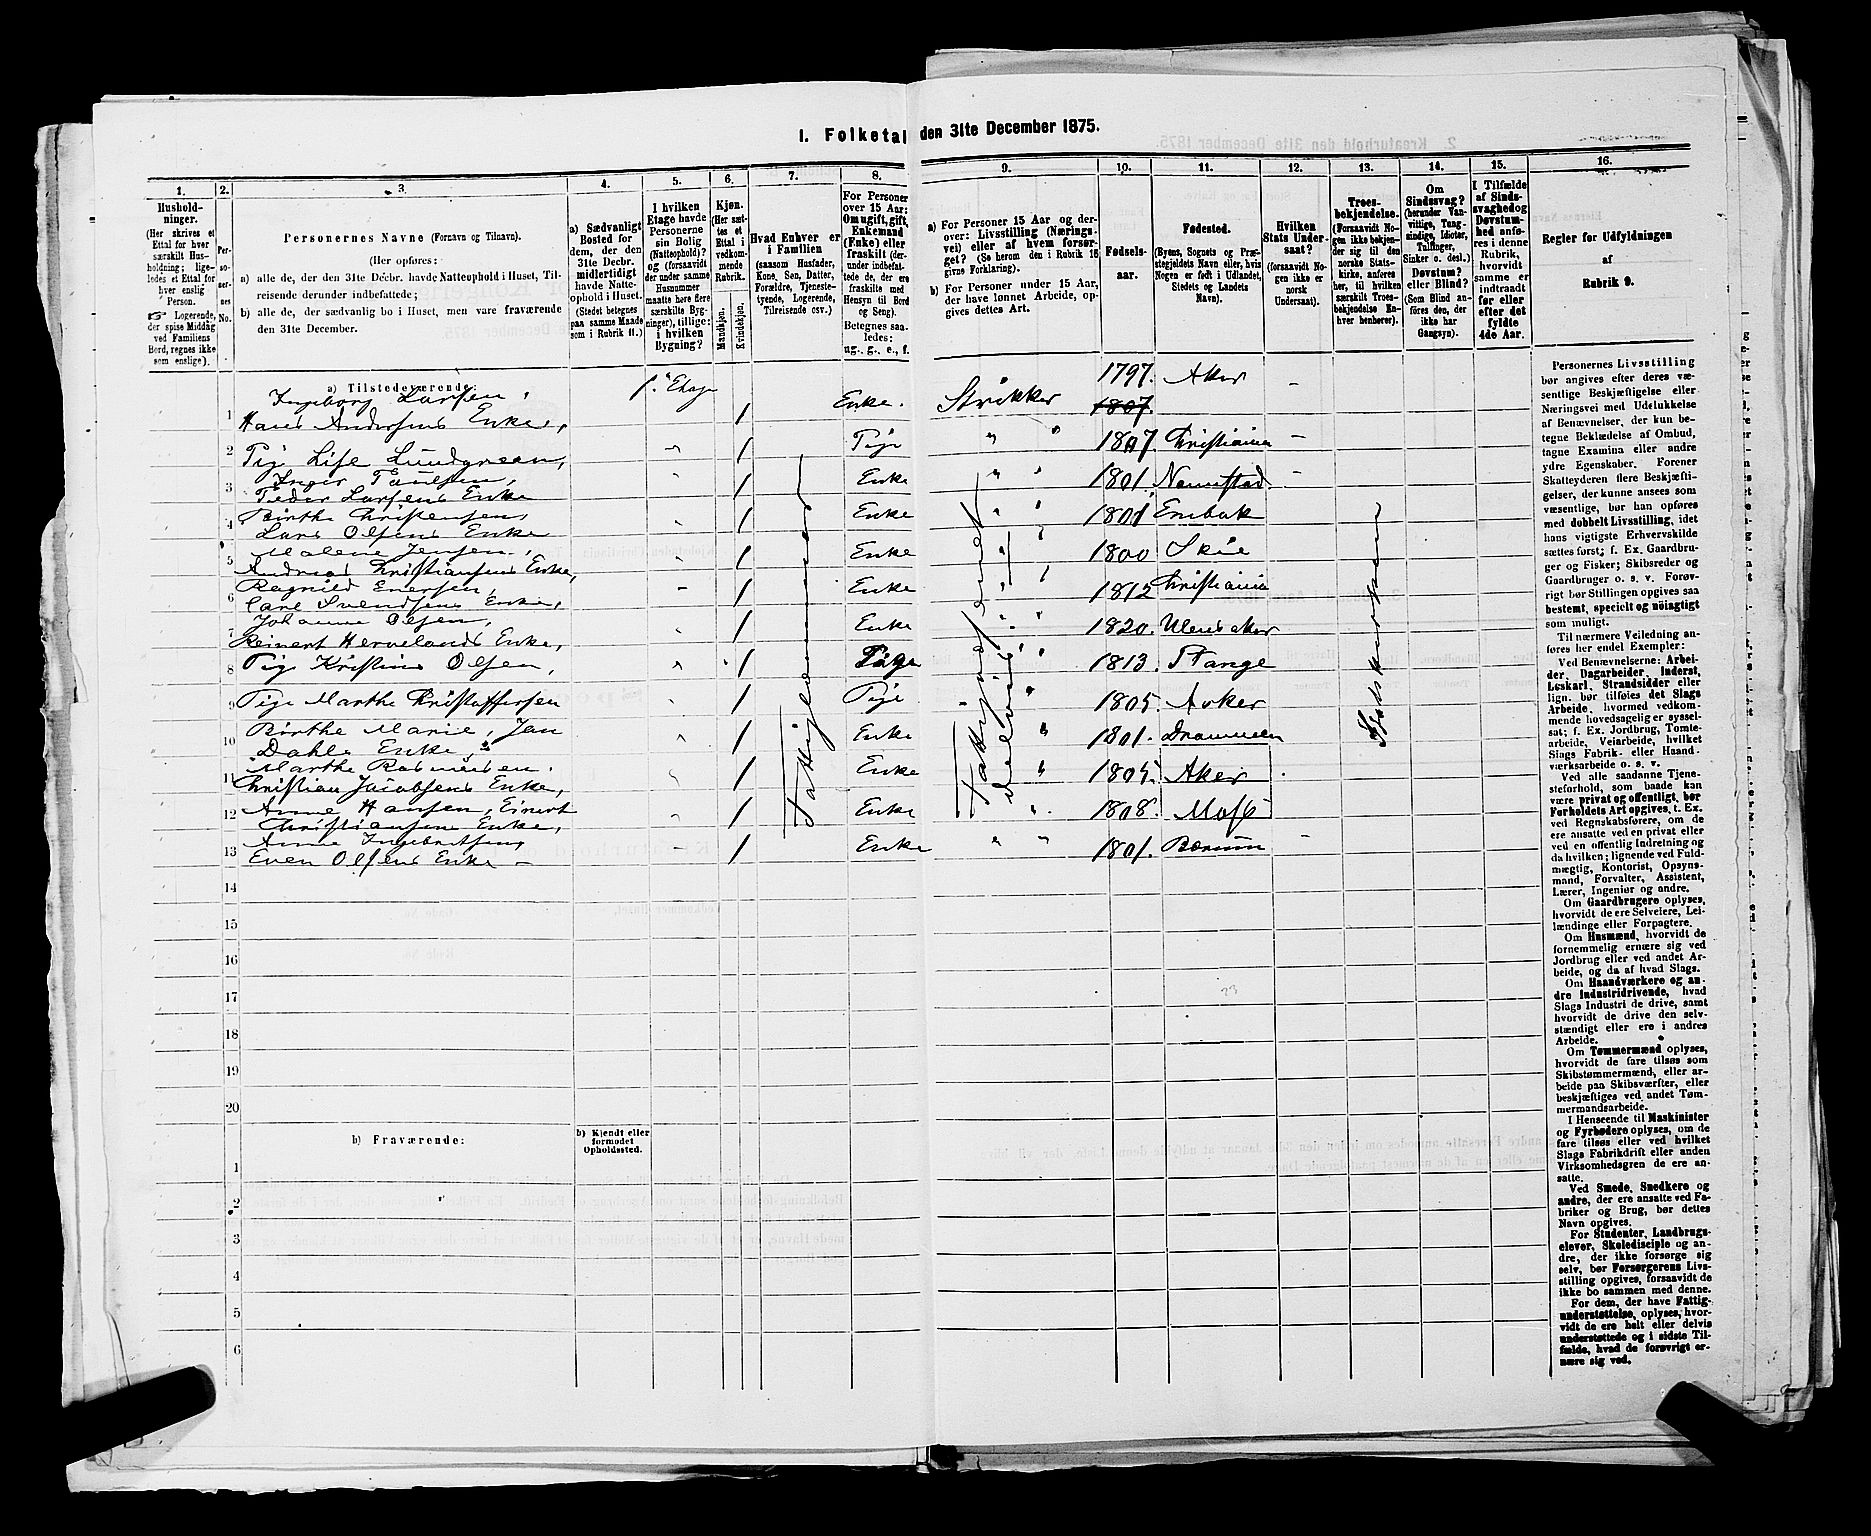 1. Folketal den 31te December 1875.
1. 2. 3. 4. 5. 6. 7. 8. 9. 10. 11. 12. 13. 14. 15. 16.
Hushold-
ninger.
(Her skrives et
Ettal for hver
særskilt Hus-
holdning; lige-
ledes et Ettal for
hver enslig
Person.
☞ Logerende,
der spise Middag
ved Familiens
Bord, regnes ikke
som enslige).
Per-
so-
ner-
nes
No.
Personernes Navne (Fornavn og Tilnavn).
(Her opføres:
a) alle de, der den 31te Decbr. havde Natteophold i Huset, Til-
reisende derunder indbefattede;
b) alle de, der sædvanlig bo i Huset, men vare fraværende
den 31te December.
a) Sædvanligt
Bosted for
dem, der den
31te Decbr.
midlertidigt
havde Natte-
ophold i Huset.
(Stedet betegnes
paa samme Maade
som i Rubrik 11.)
I hvilken
Etage havde
Personerne
sin Bolig
(Natteophold)?
og (forsaavidt
der under samme
Husnummer
maatte høre flere
særskilte Byg-
ninger), tillige:
i hvilken
Bygning?
Kjøn.
(Her sæt-
tes et
Ettal i
vedkom-
mende
Rubrik.)
Mandkjøn.
Kvindekjøn.
Hvad Enhver er
i Familien
(saasom Husfader,
Kone, Søn, Datter,
Forældre, Tjeneste-
tyende, Logerende,
Tilreisende osv.)
For Personer
over 15 Aar:
Om ugift, gift,
Enkemand
(Enke) eller
fraskilt (der-
under indbefat-
tede de, der ere
fraskilte med
Hensyn til Bord
og Seng).
Betegnes saa-
ledes:
ug., g., e., f.
a) For Personer 15 Aar og der-
over: Livsstilling (Nærings-
vei) eller af hvem forsør-
get? (Se herom den i Rubrik 16
givne Forklaring).
b) For Personer under 15 Aar,
der have lønnet Arbeide, op-
gives dettes Art.
Fødsels-
aar.
Fødested.
(Byens, Sognets og Præ-
stegjeldets Navn eller, hvis
Nogen er født i Udlandet,
Stedets og Landets
Navn).
Hvilken
Stats Under-
saat?
(forsaavidt No-
gen ikke er
norsk
Undersaat).
Troes-
bekjendelse.
(Forsaavidt No-
gen ikke bekjen-
der sig til den
norske Stats-
kirke, anføres
her, til hvilket
særskilt Troes-
bekjendelse En-
hver henhører).
Om
Sindssvag?
(herunder Van-
vittige, Tung-
sindige, Idioter,
Tullinger,
Sinker o. desl.)
Døvstum?
eller Blind?
(Som Blind an-
føres den, der
ikke har
Gangsyn).
I Tilfælde
af Sinds-
svaghed og
Døvstum-
hed anfø-
res i denne
Rubrik,
hvorvidt
samme er
indtraadt
før eller
efter det
fyldte
4de Aar.
Regler for Udfyldningen
af
Rubrik 9.
a) Tilstedeværende:
Ingeborg Larsen, 1. Etage 1797. Aker –
1 Hans Andersens Enke, 1 Enke. Strikker 1807.
2 Pige Lise Lundgreen, " 1 Pige " " 1807. Christiania –
Inger Paulsen,
3 Peder Larsens Enke " 1 Enke " " 1801. Nannestad. –
4 Birthe Christensen, " 1 Enke " " 1801 Enebak
Lars Olsens Enke
5 Malene Jensen, " 1 Enke " " 1800 Skie
Andreas Christiansens Enke,
6 Ragnild Enersen, " 1 Enke " " 1812 Christiania
Carl Svendsens Enke,
7 Johanne Olsen, " 1 Enke " " 1820. Ulensaker
Reinert Hervelands Enke,
8 Pige Kristine Olsen, " 1 Pige " 1813. Stange
9 Pige Marthe Christoffersen " 1 Pige " 1805. Aker
10 Birthe Marie, Jan " 1 Enke " 1801. Drammen
Dahls Enke,
11 Marthe Rasmussen. " 1 Enke " 1805. Aker
Christian Jacobsens Enke,
12 Anne Hansen, Einert " 1 Enke " 1808. Moss
Christiansens Enke,
13 Anne Ingebretsen, " 1 Enke " " 1801. Bærum
Even Olsens Enke –
Fattiglemmer
Fattigunderstøttet
delvis
Statskirken
14
15
16
17 23
18
19
20
b) Fraværende:
b) Kjendt eller
formodet
Opholdssted.
1
2
3
4
5
6
Personernes Livsstilling
bør angives efter deres væ-
sentlige Beskjæftigelse eller
Næringsvei med Udelukkelse
af Benævnelser, der kun be-
tegne Beklædelse af Ombud,
tagne Examina eller andre
ydre Egenskaber. Forener
Skatteyderen flere Beskjæfti-
gelser, der kunne ansees som
væsentlige, bør han opføres
med dobbelt Livsstilling, idet
hans vigtigste Erhvervskilde
sættes først; f. Ex. Gaardbru-
ger og Fisker; Skibsreder og
Gaardbruger o. s. v. Forøv-
rigt bør Stillingen opgives saa
bestemt, specielt og nöiagtigt
som muligt.
Til nærmere Veiledning an-
føres her endel Exempler:
Ved Benævnelserne: Arbei-
der, Dagarbeider, Inderst,
Løskarl, Strandsidder eller
lign. bør tilføies det Slags
Arbeide, hvormed vedkom-
mende hovedsagelig er syssel-
sat; f. Ex. Jordbrug, Tomte-
arbeide, Veiarbeide, hvilket
Slags Fabrik- eller Haand-
værksarbeide o. s. v.
Ved alle saadanne Tjene-
steforhold, som baade kan
være privat og offentligt, bør
Forholdets Art opgives, t. Ex.
ved Regnskabsførere, om de
ere ansatte ved en privat eller
ved en offentlig Indretning og
da hvilken; lignende ved Fuld-
mægtig, Kontorist, Opsyns-
mand, Forvalter, Assistent,
Lærer, Ingeniør og andre.
Om Gaardbrugere oplyses,
hvorvidt de ere Selveiere, Lei-
lændinge eller Forpagtere.
Om Husmænd, hvorvidt de
fornemmelig ernære sig ved
Jordbrug eller ved andet Ar-
beide, og da af hvad Slags.
Om Haandværkere og an-
dre Industridrivende, hvad
Slags Industri de drive, samt
hvorvidt de drive den selv-
stændigt eller ere i andres
Arbeide.
Om Tømmermænd oplyses,
hvorvidt de fare tilsøs som
Skibstømmermænd, eller ar-
beide paa Skibsværfter, eller
beskjæftiges ved andet Tøm-
mermandsarbeide.
I Henseende til Maskinister
og Fyrbødere oplyses, om de
fare tilsøs eller ved hvilket
Slags Fabrikdrift eller anden
Virksomhedsgren de ere an-
satte.
Ved Smede, Snedkere og
andre, der ere ansatte ved Fa-
briker og Brug, bør dettes
Navn opgives.
For Studenter, Landbrugs-
elever, Skoledisciple og an-
dre, der ikke forsørge sig
selv, bør Forsørgerens Livs-
stilling opgives, forsaavidt de
ikke bo sammen med denne.
For dem, der have Fattig-
understøttelse, oplyses, hvor-
vidt de ere helt eller delvis
understøttede og i sidste Til-
fælde, hvad de forøvrigt er-
nære sig ved.